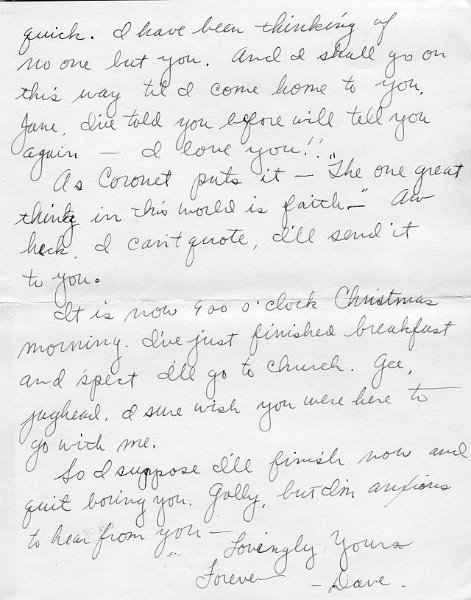 quick. I have been thinking of
no one but you. And I shall go on
this way til I come home to you,
Jane, I've told you before will tell you
again — I love you!!
As Coronet puts it — "The one great
thing in this world is faith —" Aw
heck, I can't quote, I'll send it
to you.
It is now 900 o'clock Christmas
morning. I've just finished breakfast
and spect I'll go to church. Gee,
jughead, I sure wish you were here to
go with me.
So I suppose I'll finish now and
quit boring you. Golly, but I'm anxious
to hear from you —
Lovingly Yours
Forever — Dave.